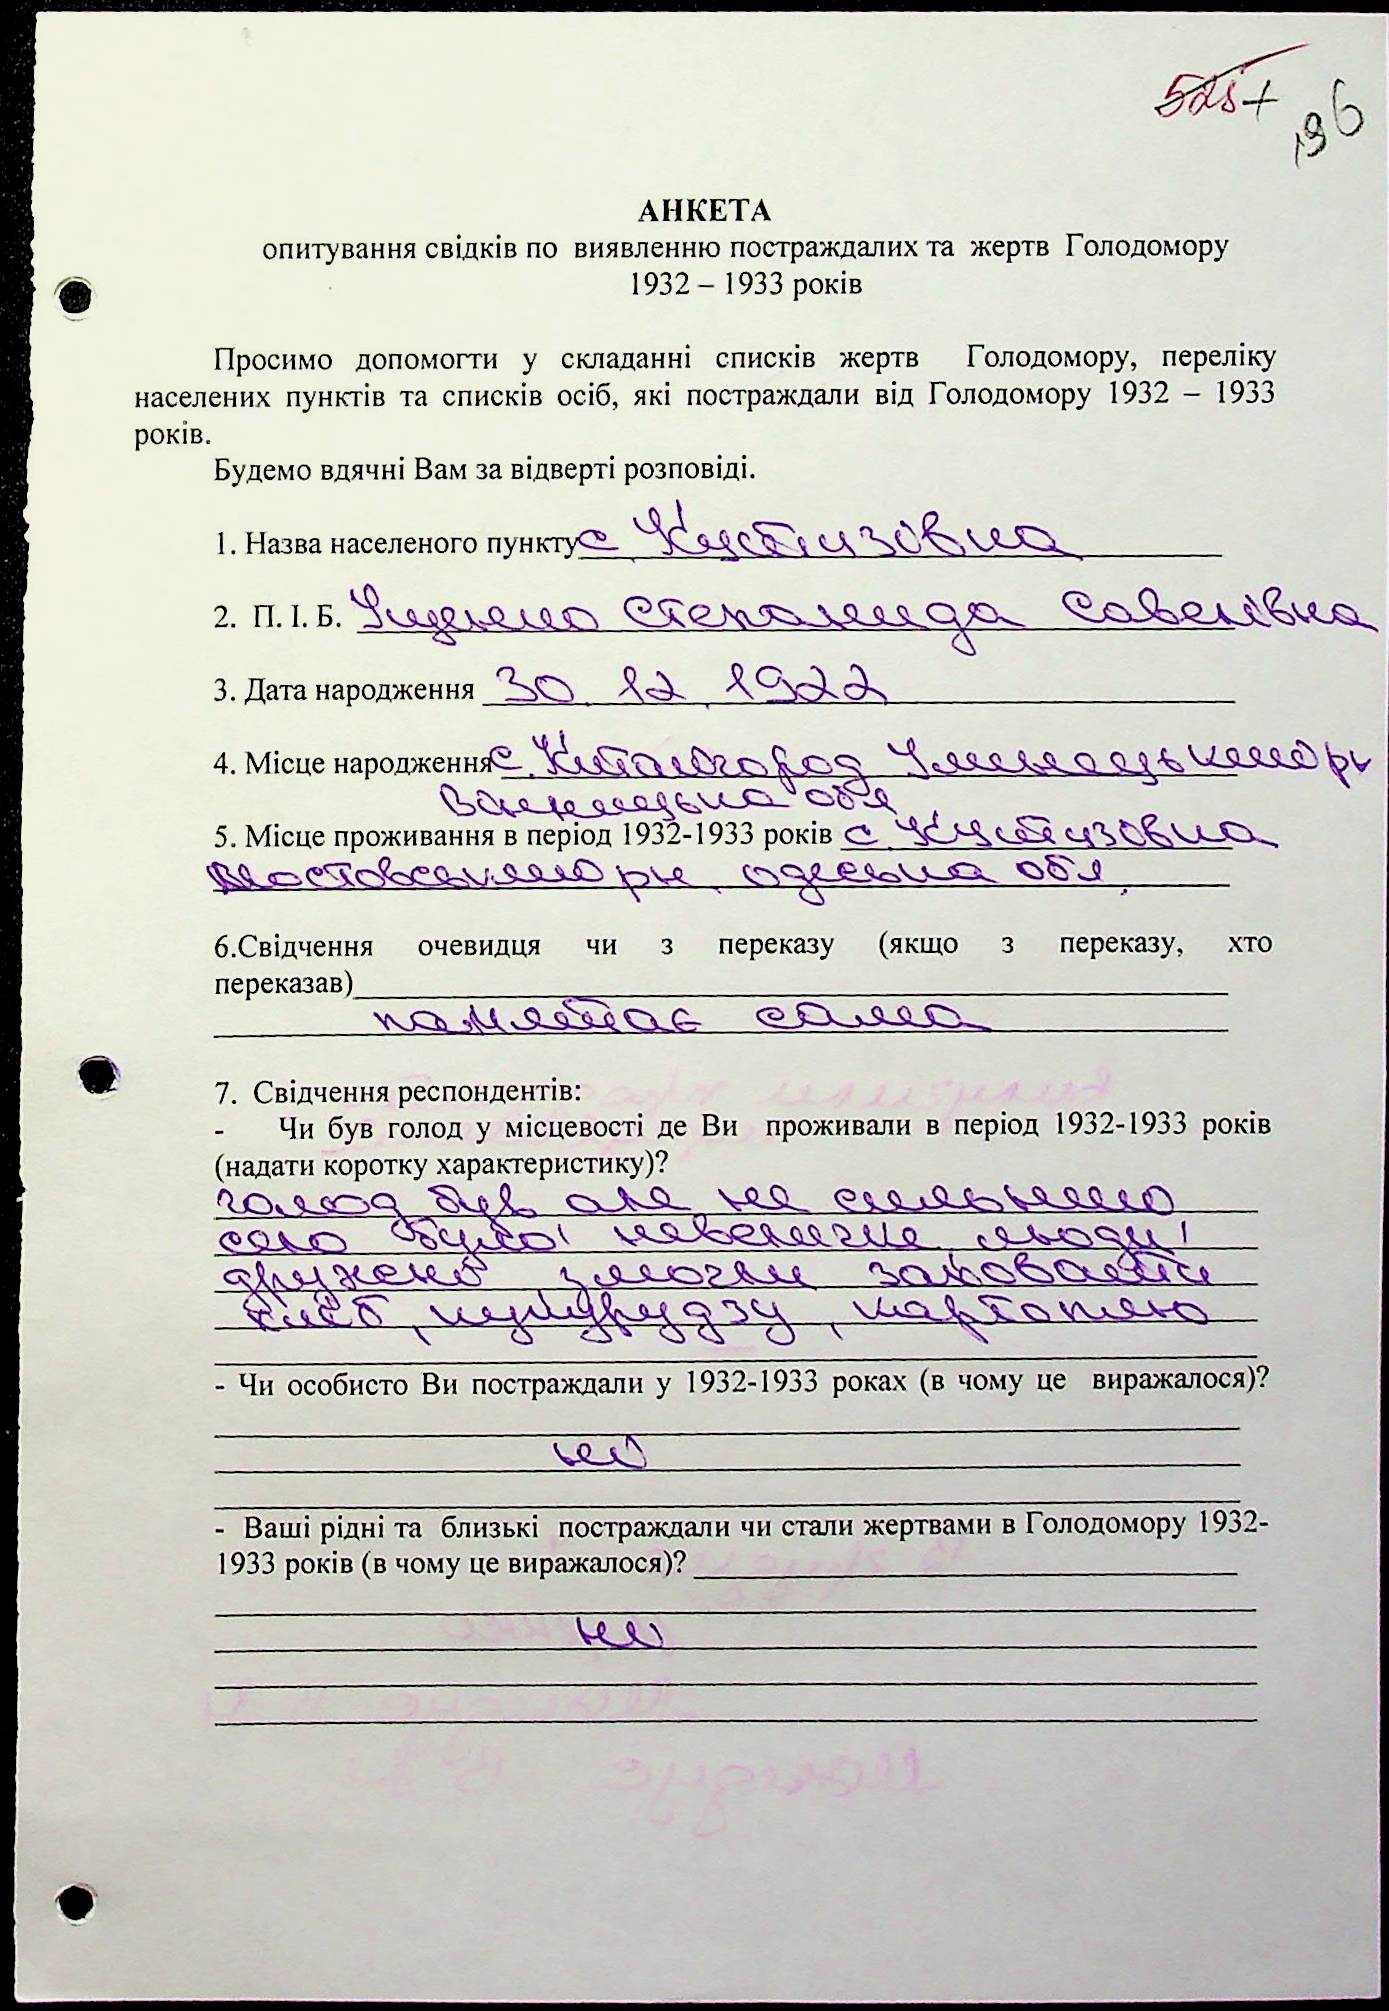 196
АНКЕТА
опитування свідків по виявленню постраждалих та жертв Голодомору
1932 – 1933 років
Просимо допомогти у складанні списків жертв Голодомору, переліку
населених пунктів та списків осіб, які постраждали від Голодомору 1932 – 1933
років.
Будемо вдячні Вам за відверті розповіді.
1. Назва населеного пункту с Кустизовка
2. П. І. Б. Степанида Савелівна
3. Дата народження 30. 12. 1922
4. Місце народження с. Китайгород
Вінницька обл
5. Місце проживання в період 1932-1933 років с Кустизовка
рн одеська обл
6.Свідчення очевидця чи з переказу (якщо з переказу, хто
переказав)
памятає сама
7. Свідчення респондентів:
- Чи був голод у місцевості де Ви проживали в період 1932-1933 років
(надати коротку характеристику)?
голод був але не сильний
село було невеличке люди
дружено змогли заховати
хліб, кукурудзу, картоплю
- Чи особисто Ви постраждали у 1932-1933 роках (в чому це виражалося)?
ні
- Ваші рідні та близькі постраждали чи стали жертвами в Голодомору 1932-
1933 років (в чому це виражалося)?
ні